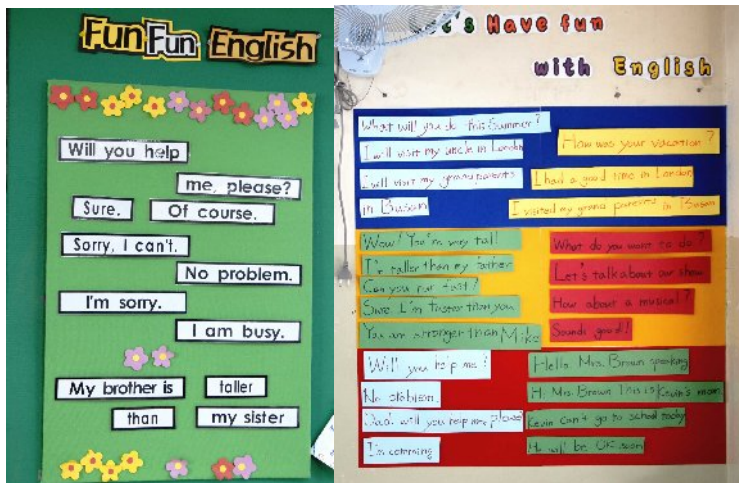 Fun Fun English
Will you help
me, please?
Sure. Of course.
Sorry, I can't.
No problem.
I'm sorry.
I am busy.
My brother is taller
than my sister
Let's Have fun
with English
What will you do this Summer?
I will visit my uncle in London
I will visit my grandparents
in Busan
How was your vacation?
I had a good time in London
I visited my grand parents in Busan
Wow! You're very tall
I'm taller than my father
Can you run fast?
Sure. I'm faster than you
You are stronger than Mike
What do you want to do?
Let's talk about our show
How about a musical?
Sounds good!
Will you help me?
No problem.
Dad, will you help me, please
I'm coming
Hello. Mrs. Brown speaking
Hi. Mrs. Brown This is Kevin's mom.
Kevin can't go to school today
He will be OK soon